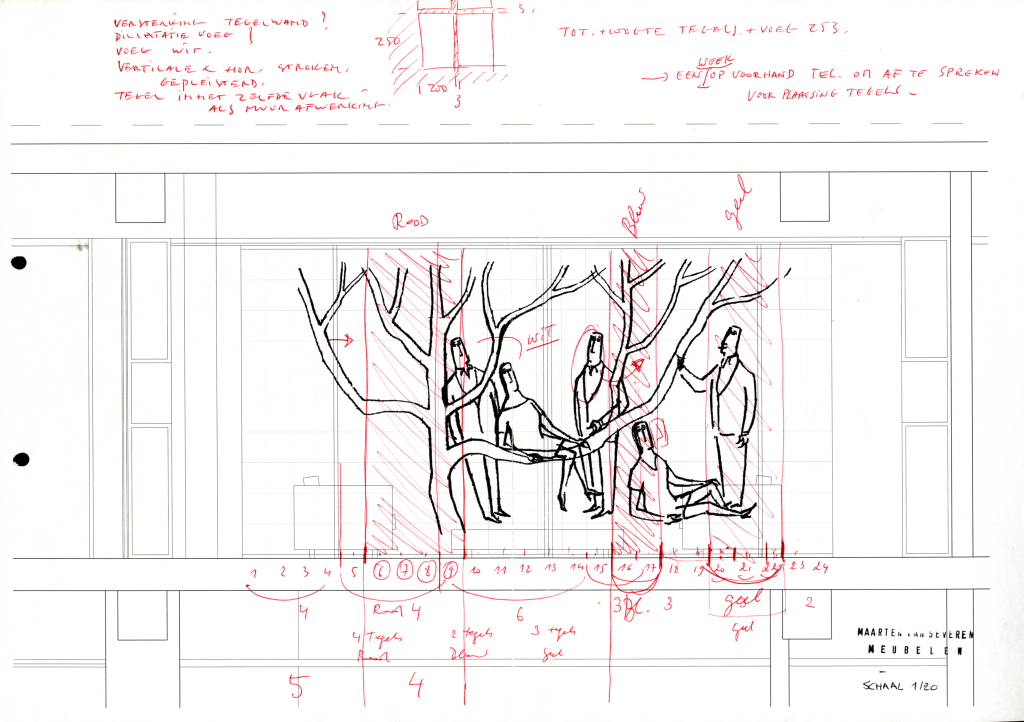 VERSTERKING TEGELWAND?
DILLATATIE VOEG!
VOEG WIT.
VERTICALE & HOR. STROKEN,
GEPLEISTERD.
TEGEL IN HET ZELFDE VLAK
ALS MUUR AFWERKING.
250
200
3
3.
TOT. HOOGTE TEGELS + VOEG 253.
WEEK
→ EEN OP VOORHAND TEL. OM AF TE SPREKEN
VOOR PLAATSING TEGELS
ROOD
Blauw
geel
WIT
1 2 3 4 5 6 7 8 9 10 11 12 13 14 15 16 17 18 19 20 21 22 23 24
4 Rood 4 6 3 Bl. 3 geel 2
4 Tegels 2 tegels 3 tegels geel
Rood Blauw Geel
5 4
MAARTEN VAN SEVEREN
MEUBELEN
SCHAAL 1/20